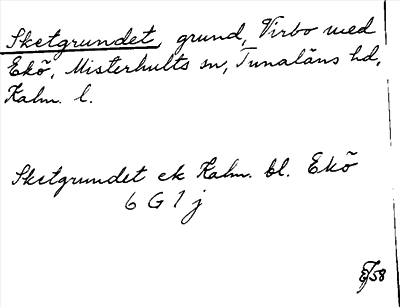 Sketgrundet, grund, Virbo med
Ekö, Misterhults sn, Tunaläns hd,
Kalm. l.
Sketgrundet ek Kalm. bl. Ekö
6 G 1 j
E/58